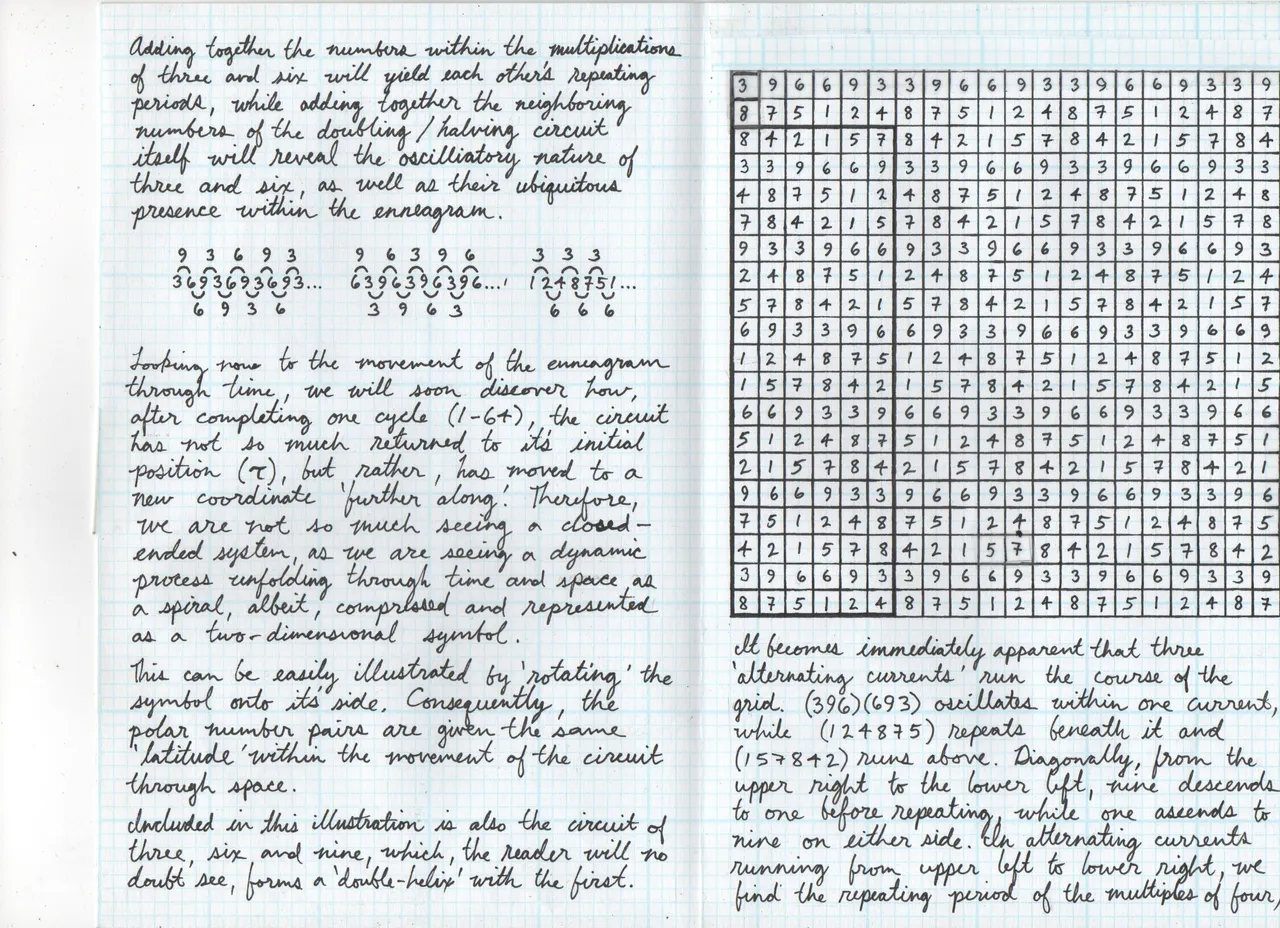 Adding together the numbers within the multiplications
of three and six will yield each other's repeating
periods, while adding together the neighboring
numbers of the doubling / halving circuit
itself will reveal the oscilliatory nature of
three and six, as well as their ubiquitous
presence within the enneagram.
9 3 6 9 3
3693693693...
6 9 3 6
9 6 3 9 6
6396396396...,
3 9 6 3
3 3 3
1248751...
6 6 6
Looking now to the movement of the enneagram
through time, we will soon discover how,
after completing one cycle (1-64), the circuit
has not so much returned to it's initial
position (τ), but rather, has moved to a
new coordinate 'further along.' Therefore,
we are not so much seeing a closed-
ended system, as we are seeing a dynamic
process unfolding through time and space as
a spiral, albeit, compressed and represented
as a two-dimensional symbol.
This can be easily illustrated by 'rotating' the
symbol onto it's side. Consequently, the
polar number pairs are given the same
'latitude' within the movement of the circuit
through space.
Included in this illustration is also the circuit of
three, six and nine, which, the reader will no
doubt see, forms a 'double-helix' with the first.
3 9 6 6 9 3 3 9 6 6 9 3 3 9 6 6 9 3 3 9
8 7 5 1 2 4 8 7 5 1 2 4 8 7 5 1 2 4 8 7
8 4 2 1 5 7 8 4 2 1 5 7 8 4 2 1 5 7 8 4
3 3 9 6 6 9 3 3 9 6 6 9 3 3 9 6 6 9 3 3
4 8 7 5 1 2 4 8 7 5 1 2 4 8 7 5 1 2 4 8
7 8 4 2 1 5 7 8 4 2 1 5 7 8 4 2 1 5 7 8
9 3 3 9 6 6 9 3 3 9 6 6 9 3 3 9 6 6 9 3
2 4 8 7 5 1 2 4 8 7 5 1 2 4 8 7 5 1 2 4
5 7 8 4 2 1 5 7 8 4 2 1 5 7 8 4 2 1 5 7
6 9 3 3 9 6 6 9 3 3 9 6 6 9 3 3 9 6 6 9
1 2 4 8 7 5 1 2 4 8 7 5 1 2 4 8 7 5 1 2
1 5 7 8 4 2 1 5 7 8 4 2 1 5 7 8 4 2 1 5
6 6 9 3 3 9 6 6 9 3 3 9 6 6 9 3 3 9 6 6
5 1 2 4 8 7 5 1 2 4 8 7 5 1 2 4 8 7 5 1
2 1 5 7 8 4 2 1 5 7 8 4 2 1 5 7 8 4 2 1
9 6 6 9 3 3 9 6 6 9 3 3 9 6 6 9 3 3 9 6
7 5 1 2 4 8 7 5 1 2 4 8 7 5 1 2 4 8 7 5
4 2 1 5 7 8 4 2 1 5 7 8 4 2 1 5 7 8 4 2
3 9 6 6 9 3 3 9 6 6 9 3 3 9 6 6 9 3 3 9
8 7 5 1 2 4 8 7 5 1 2 4 8 7 5 1 2 4 8 7
It becomes immediately apparent that three
'alternating currents' run the course of the
grid. (396)(693) oscillates within one current,
while (124875) repeats beneath it and
(157842) runs above. Diagonally, from the
upper right to the lower left, nine descends
to one before repeating, while one ascends to
nine on either side. In alternating currents
running from upper left to lower right, we
find the repeating period of the multiples of four,